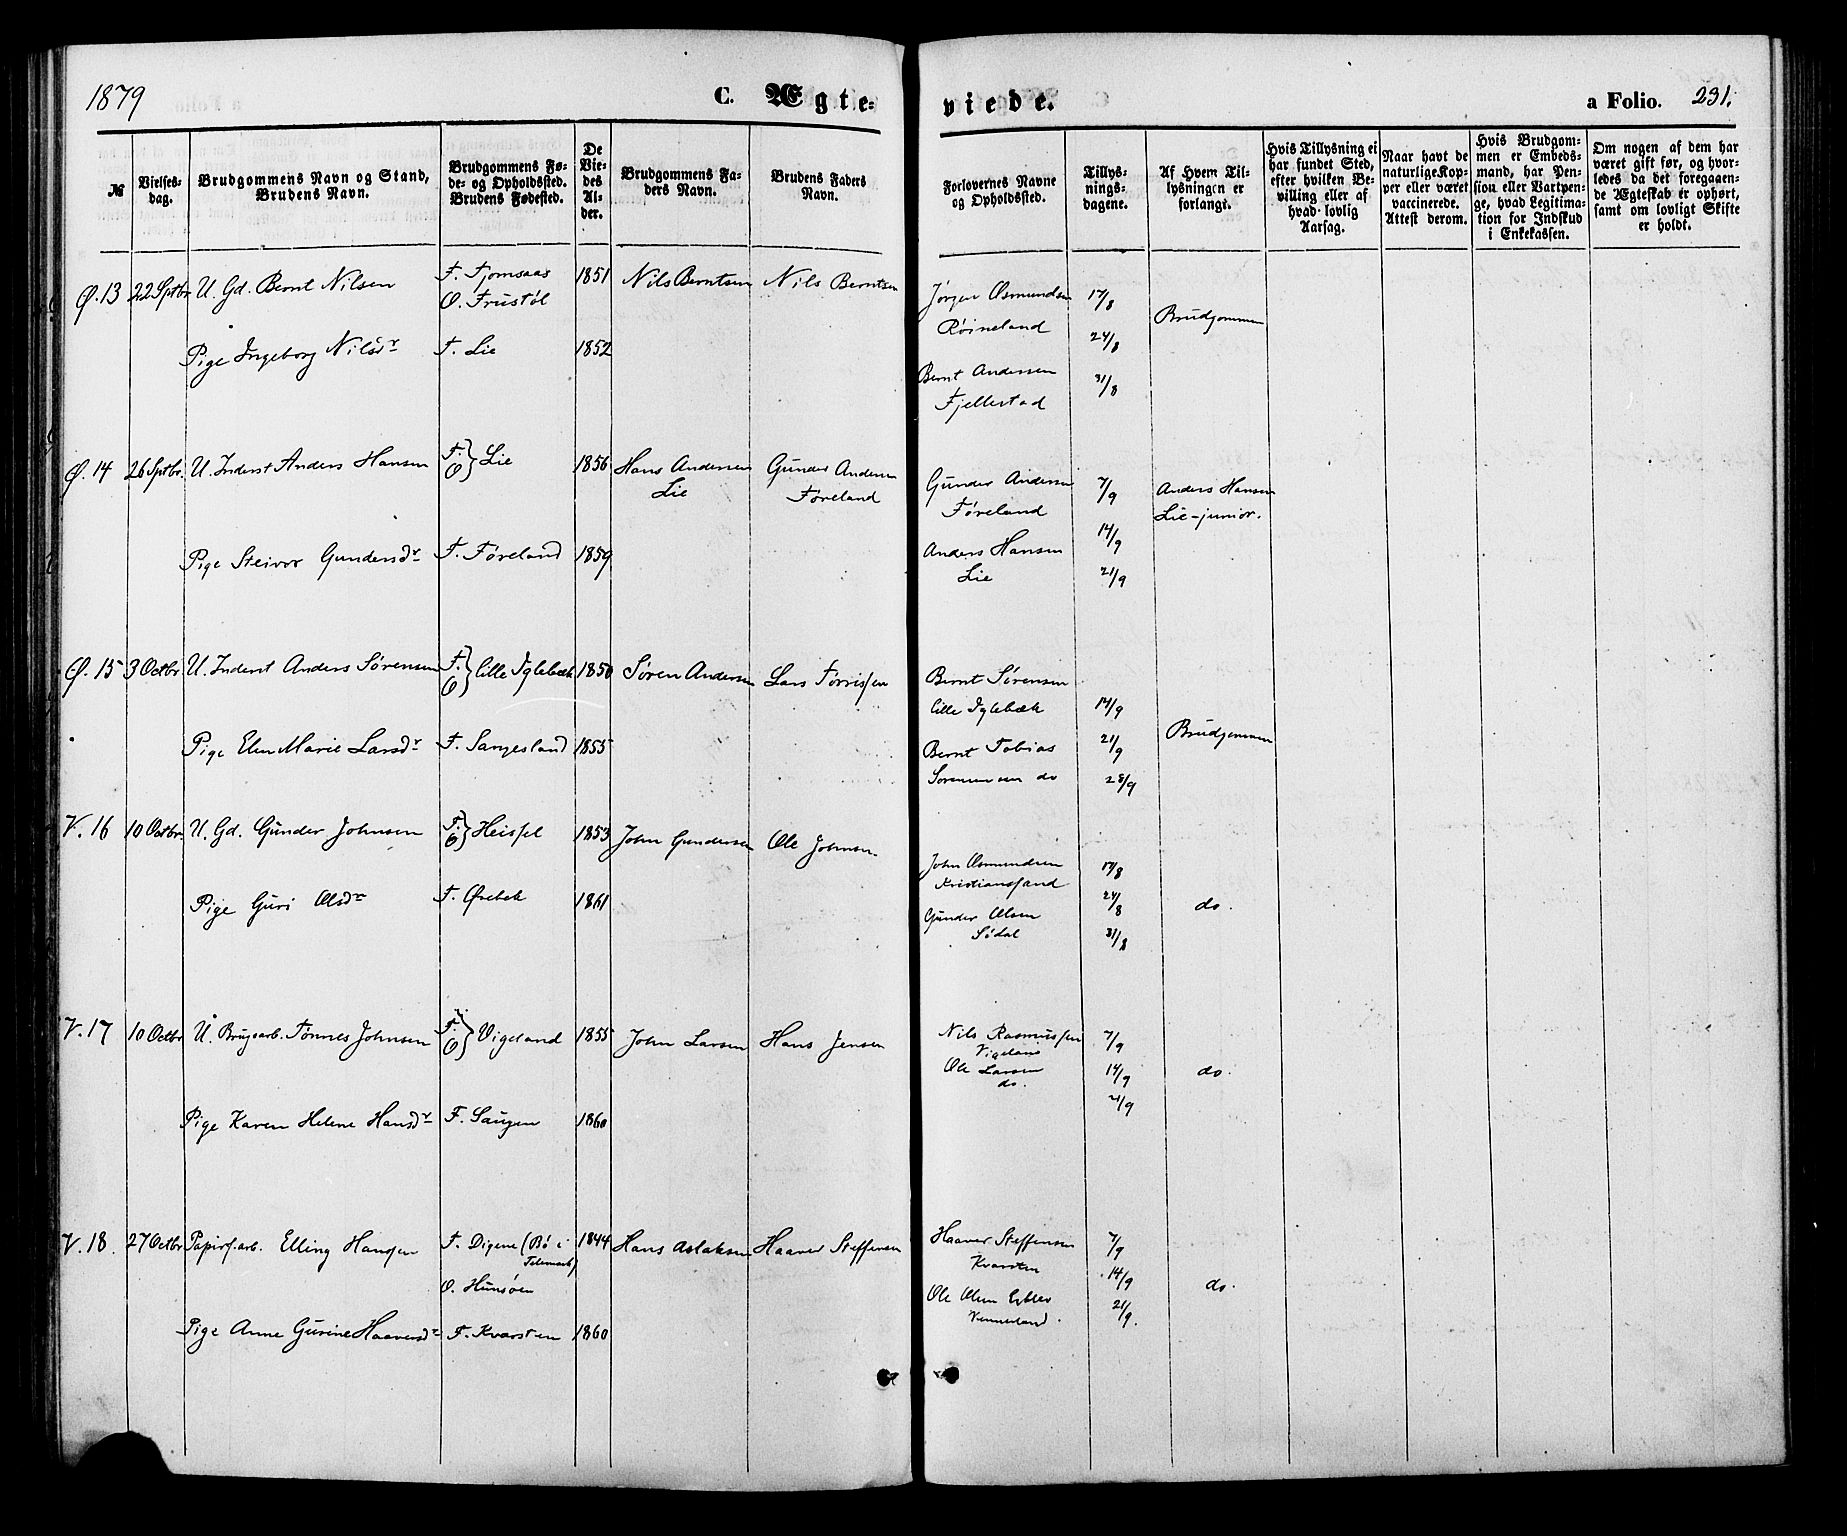 1879
C. Ægte-
viede.
a Folio. 231.
№
Vielses-
dag.
Brudgommens Navn og Stand,
Brudens Navn.
Brudgommens Fø-
de- og Opholdssted.
Brudens Fødested.
De
Vie-
des
Al-
der.
Brudgommens Fa-
ders Navn.
Brudens Faders
Navn.
Forlovernes Navne
og Opholdssted.
Tillys-
nings-
dagene.
Af Hvem Til-
lysningen er
forlangt.
Hvis Tillysning ei
har fundet Sted,
efter hvilken Be-
villing eller af
hvad lovlig
Aarsag.
Naar havt de
naturlige Kop-
per eller været
vaccinerede.
Attest derom.
Hvis Brudgom-
men er Embeds-
mand, har Pen-
sion eller Vartpen-
ge, hvad Legitima-
tion for Indskud
i Enkekassen.
Om nogen af dem har
været gift før, og hvor-
ledes da det foregaaen-
de Ægteskab er ophørt,
samt om lovligt Skifte
er holdt.
Ø. 13 22 Sptbr U. Gd. Bernt Nilsen F. Fjomsaas 1851 Nils Berntsen Nils Berntsen
O. Frustøl
Jørgen Osmundsen 17/8
Røineland 24/8 Brudgommen
Pige Ingeborg Nilsdr F. Lie 1852
Bernt Andersen 31/8
Fjellestad
Ø. 14 26 Sptbr. U. Inderst Anders Hansen F. O } Lie 1856 Hans Andersen Gunder Andersen
Lie Føreland
Gunder Andersen 7/9 Anders Hansen
Føreland 14/9 Lie-junior.
Pige Steivor Gundersdr F. Føreland 1859
Anders Hansen
Lie 21/9
Ø. 15 3 Octbr. U. Inderst Anders Sørensen F. O } Lille Iglebæk 1850 Søren Andersen Lars Tørrissen
Bernt Sørensen
Lille Iglebæk 14/9
Pige Elen Marie Larsdr F. Sangesland 1855
Bernt Tobias 21/9 Brudgommen
Sørensen do 28/9
V. 16 10 Octbr. U. Gd. Gunder Johnsen F. O } Heissel 1853 John Gundersen Ole Johnsen.
John Osmundsen 17/8
Kristianssand 24/8 do.
Pige Guri Olsdr F. Ørebek 1861
Gunder Olsen
Sødal 31/8
V. 17 10 Octbr U. Brugsarb. Tønnes Johnsen F. O } Vigeland 1855 John Larsen Hans Jensen
Nils Rasmussen 7/9
Vigeland
Ole Larsen 14/9 do.
do. 21/9
Pige Karen Helene Hansdr F. Saugen 1860
V. 18. 27 Octbr Papirf.arb. Elling Hansen F. Digene (Bø i 1844 Hans Aslaksen Haaver Steffensen
Telemark)
O. Hunsøen
Haaver Steffensen 7/9
Kvarsten 14/9 do.
Ole Olsen 21/9.
Vennesland.
Pige Anne Gurine Haaversdr F. Kvarsten 1860